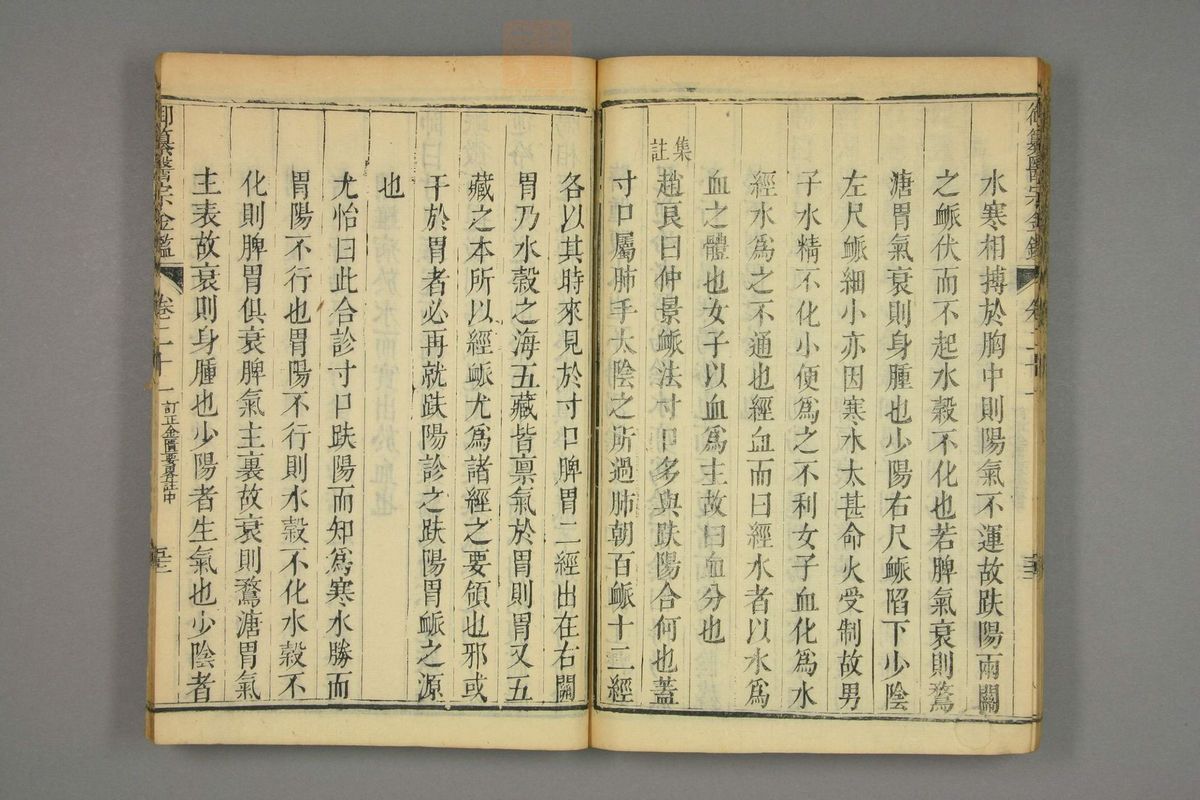 御纂醫宗金鑑
卷二十一
水寒相搏於胸中則陽氣不運故趺陽兩關
之䘑伏而不起水穀不化也若脾氣衰則鶩
溏胃氣衰則身腫也少陽右尺䘑陷下少陰
左尺䘑細小亦因寒水太甚命火受制故男
子水精不化小便爲之不利女子血化爲水
經水爲之不通也經血而曰經水者以水爲
血之體也女子以血爲主故曰血分也
集註
趙良曰仲景䘑法寸口多與趺陽合何也蓋
寸口屬肺手太陰之所過肺朝百䘑十二經
各以其時來見於寸口脾胃二經出在右關
胃乃水穀之海五藏皆禀氣於胃則胃又五
藏之本所以經䘑尤爲諸經之要領也邪或
干於胃者必再就趺陽診之趺陽胃䘑之源
也
尤怡曰此合診寸口趺陽而知爲寒水勝而
胃陽不行也胃陽不行則水穀不化水穀不
化則脾胃俱衰脾氣主裏故衰則鶩溏胃氣
主表故衰則身腫也少陽者生氣也少陰者
御纂醫宗金鑑
卷二十一
訂正金匱要畧註中